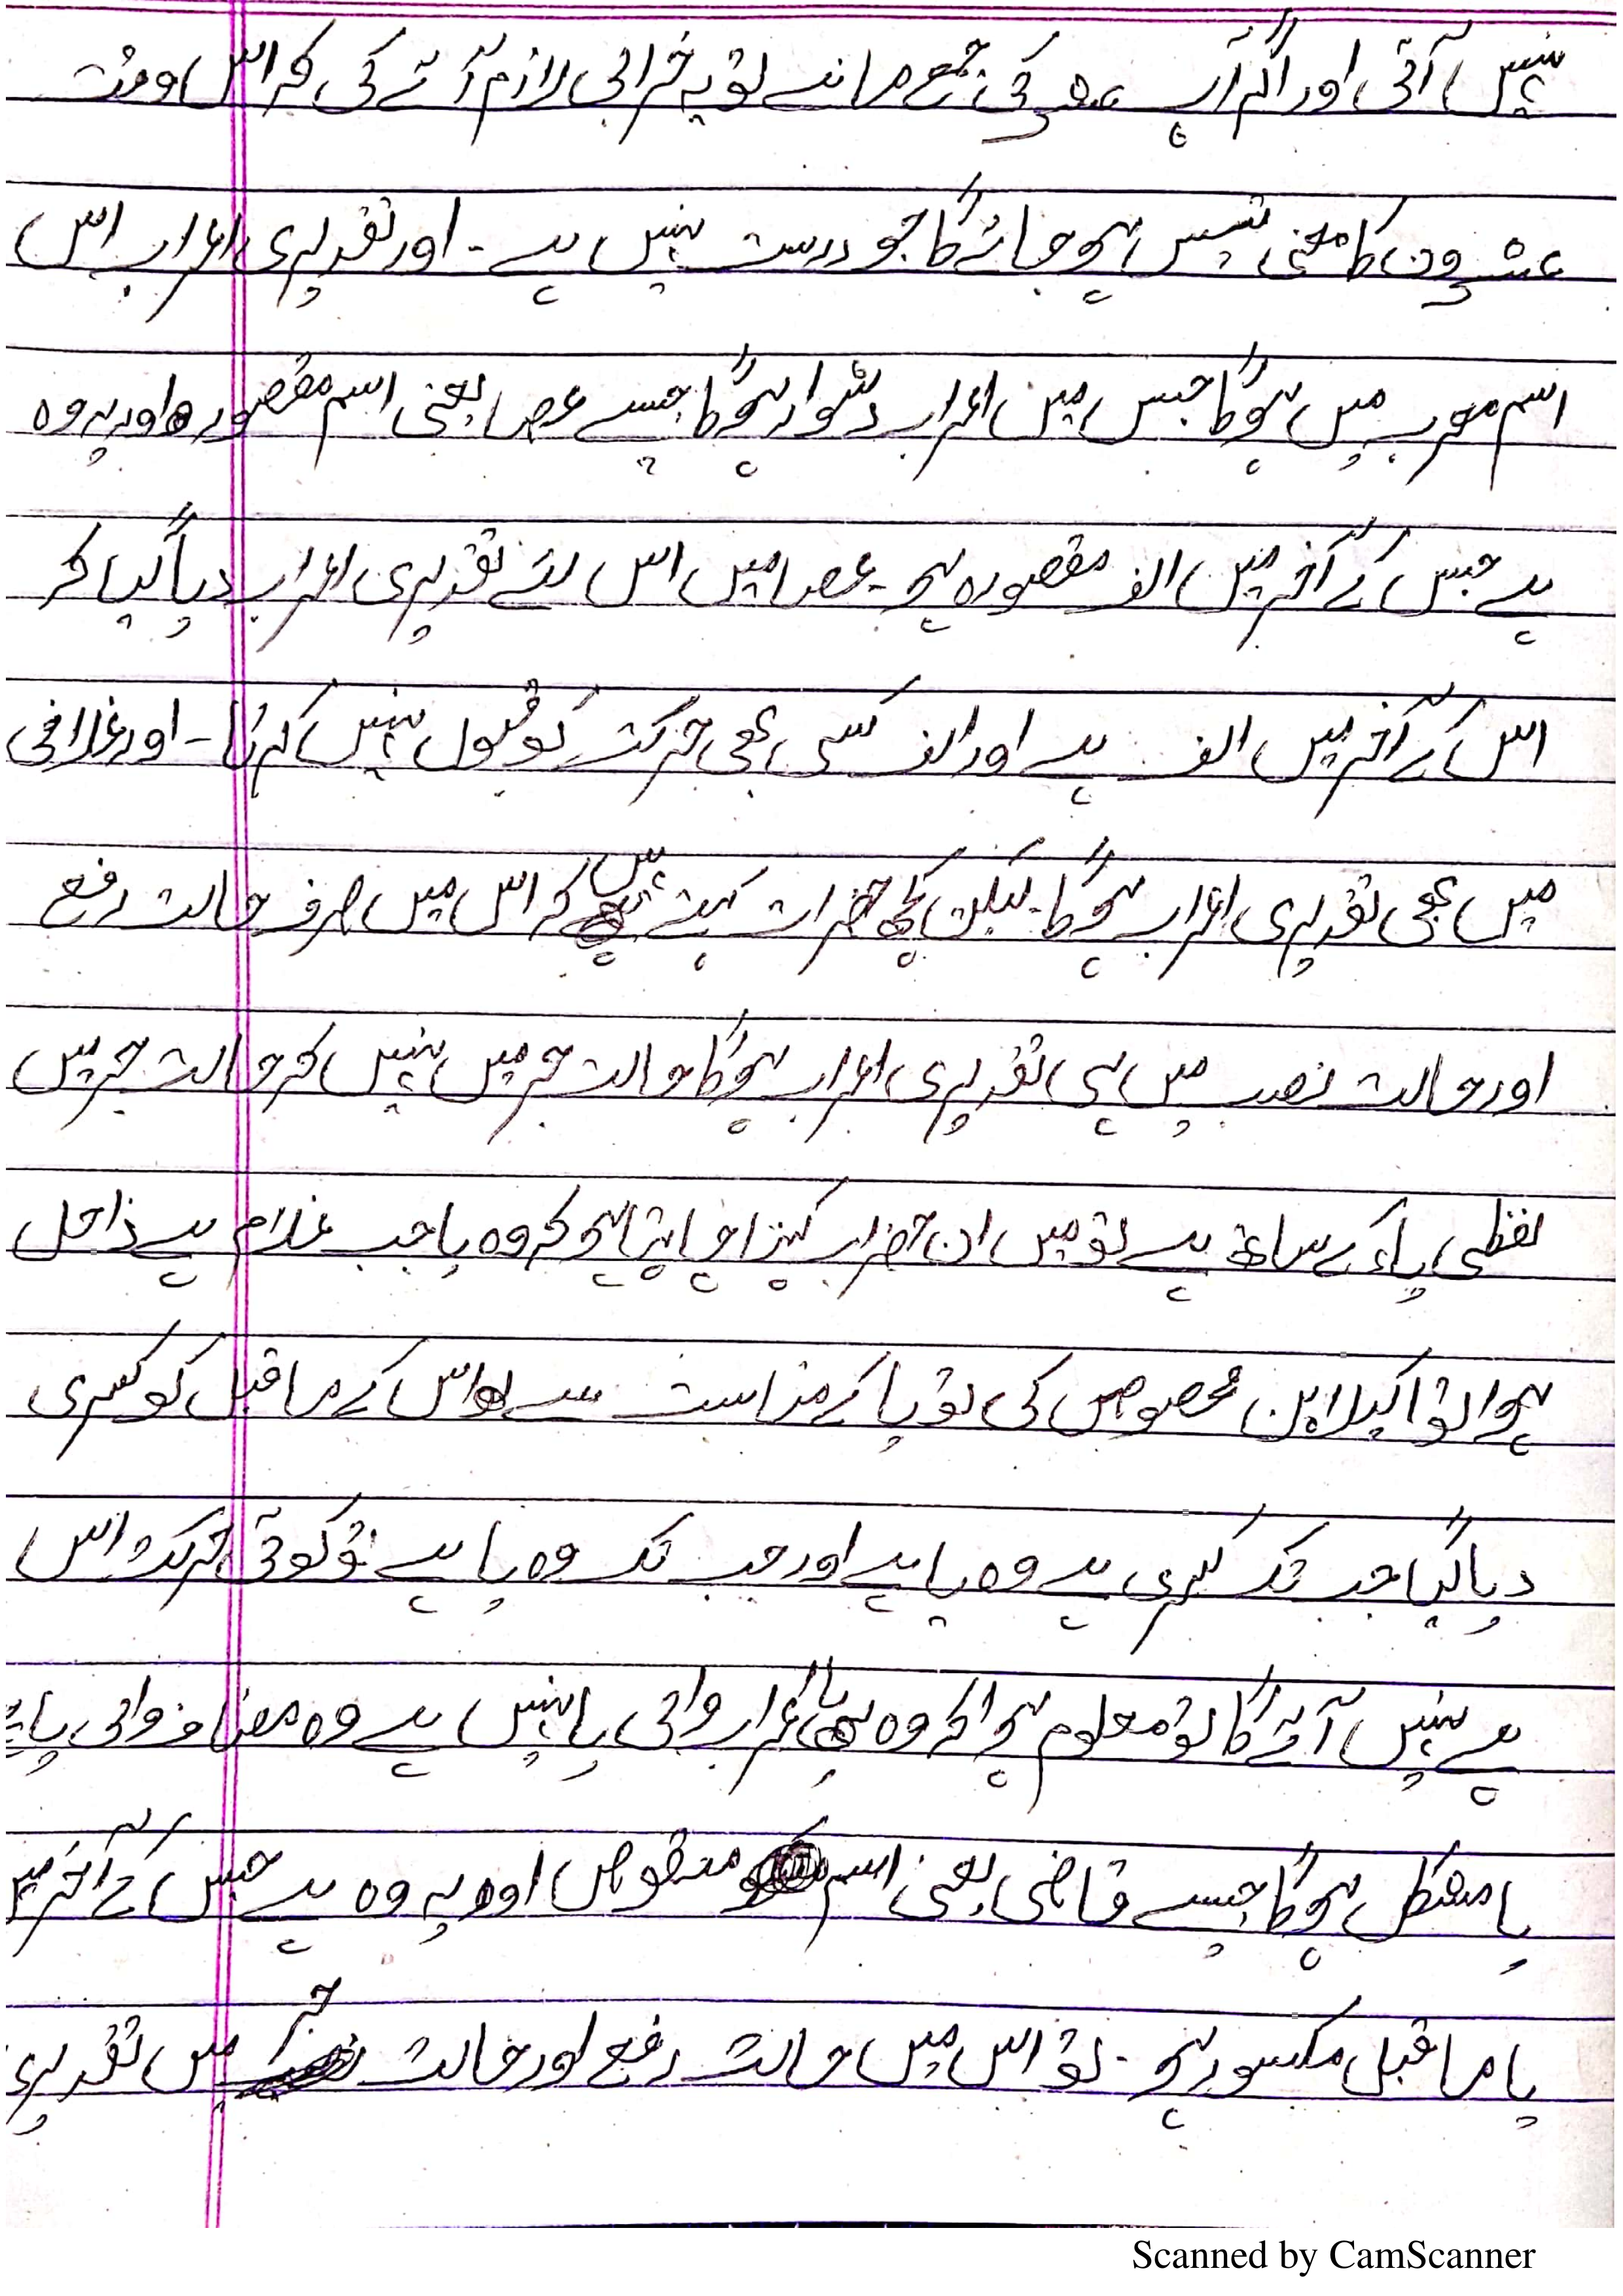 نہیں آتی اور اگر آپ عشر کی جمع مانے تو یہ خرابی لازم آئے گی کہ اس وقت
عشرون کا معنی تیس ہو جائے گا جو درست نہیں ہے ۔ اور تقدیری اعراب اس
اسم معرب میں ہوگا جس میں اعراب دشوار ہوگا جیسے عصا یعنی اسم مقصورہ اور یہ وہ
ہے جس کے آخر میں الف مقصورہ ہو ۔ عصا میں اس لئے تقدیری اعراب دیا گیا کہ
اس کے آخر میں الف ہے اور الف کسی بھی حرکت کو قبول نہیں کرتا ۔ اور غلامی
میں بھی تقدیری اعراب ہوگا ۔ لیکن کچھ حضرات کہتے ہیں کہ اس میں صرف حالت رفع
اور حالت نصب میں ہی تقدیری اعراب ہوگا حالت جر میں نہیں کہ حالت جر میں
لفظی یاء کے ساتھ ہے تو میں ان حضرات کہنا چاہتا ہو کہ وہ یا جب غلام پے داخل
ہوا تو اکیلا پن محصوص کی تو یا کے مناسبت سے اس کے ماقبل کو کسری
دیا گیا جب تک کسری ہے وہ یا ہے اور جب تک وہ یا ہے تو کوئی حرکت اس
پے نہیں آئے گا تو معلوم ہوا کہ وہ یا اعراب والی یا نہیں ہے وہ مضاف والی یا ہے
یا مشکل ہوگا جیسے قاضی یعنی اسم منقوص اور یہ وہ ہے جس کے آخر میں
یا ماقبل مکسور ہو ۔ تو اس میں حالت رفع اور حالت جر میں تقدیری
Scanned by CamScanner